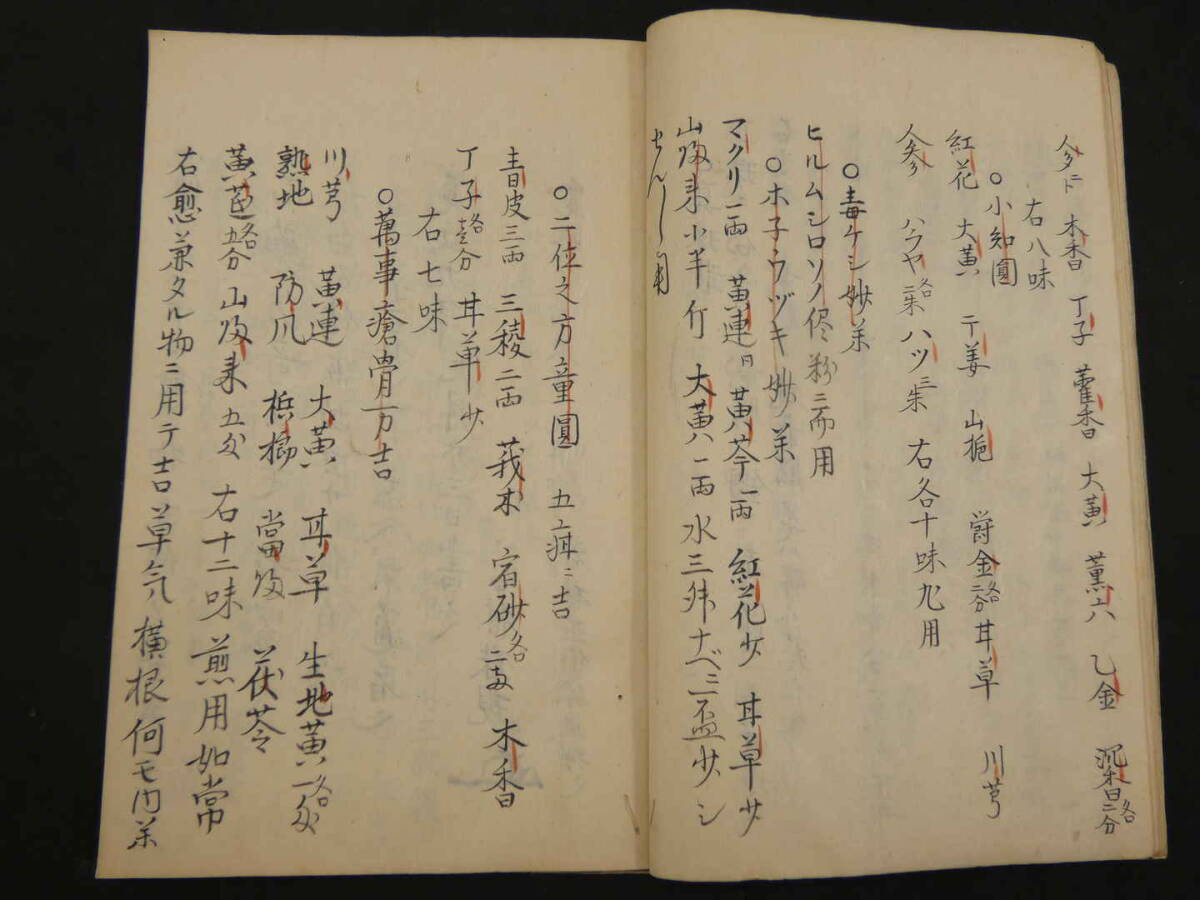 木香 丁子 藿香 大黄 薫六 乙金 沉香各二分
右八味
○小知圓
紅花 大黄 干姜 山梔 欝金各二分 甘草 川芎
人参 ハラヤ各二朱 ハツ三朱 右各十味丸用
○毒ケシ妙薬
ヒルムシロソノ侭粉ニ而用
○ホ子ウヅキ妙薬
マクリ一両 黄連同 黄芩一両 紅花少 甘草少
山帰来小半斤 大黄一両 水三升ナベニ盃少シ
せんし用
○二位之方童圓 五疳ニ吉
青皮三両 三稜二両 莪朮 宿砂各二 木香
丁子各壱分 甘草少
右七味
○萬事瘡骨一方吉
川芎 黄連 大黄 甘草 生地黄各一匁
熟地 防风 梹榔 當帰 茯苓
黄芩各五分 山帰来五匁 右十二味煎用如常
右愈兼タル物ニ用テ吉草気横根何モ内薬